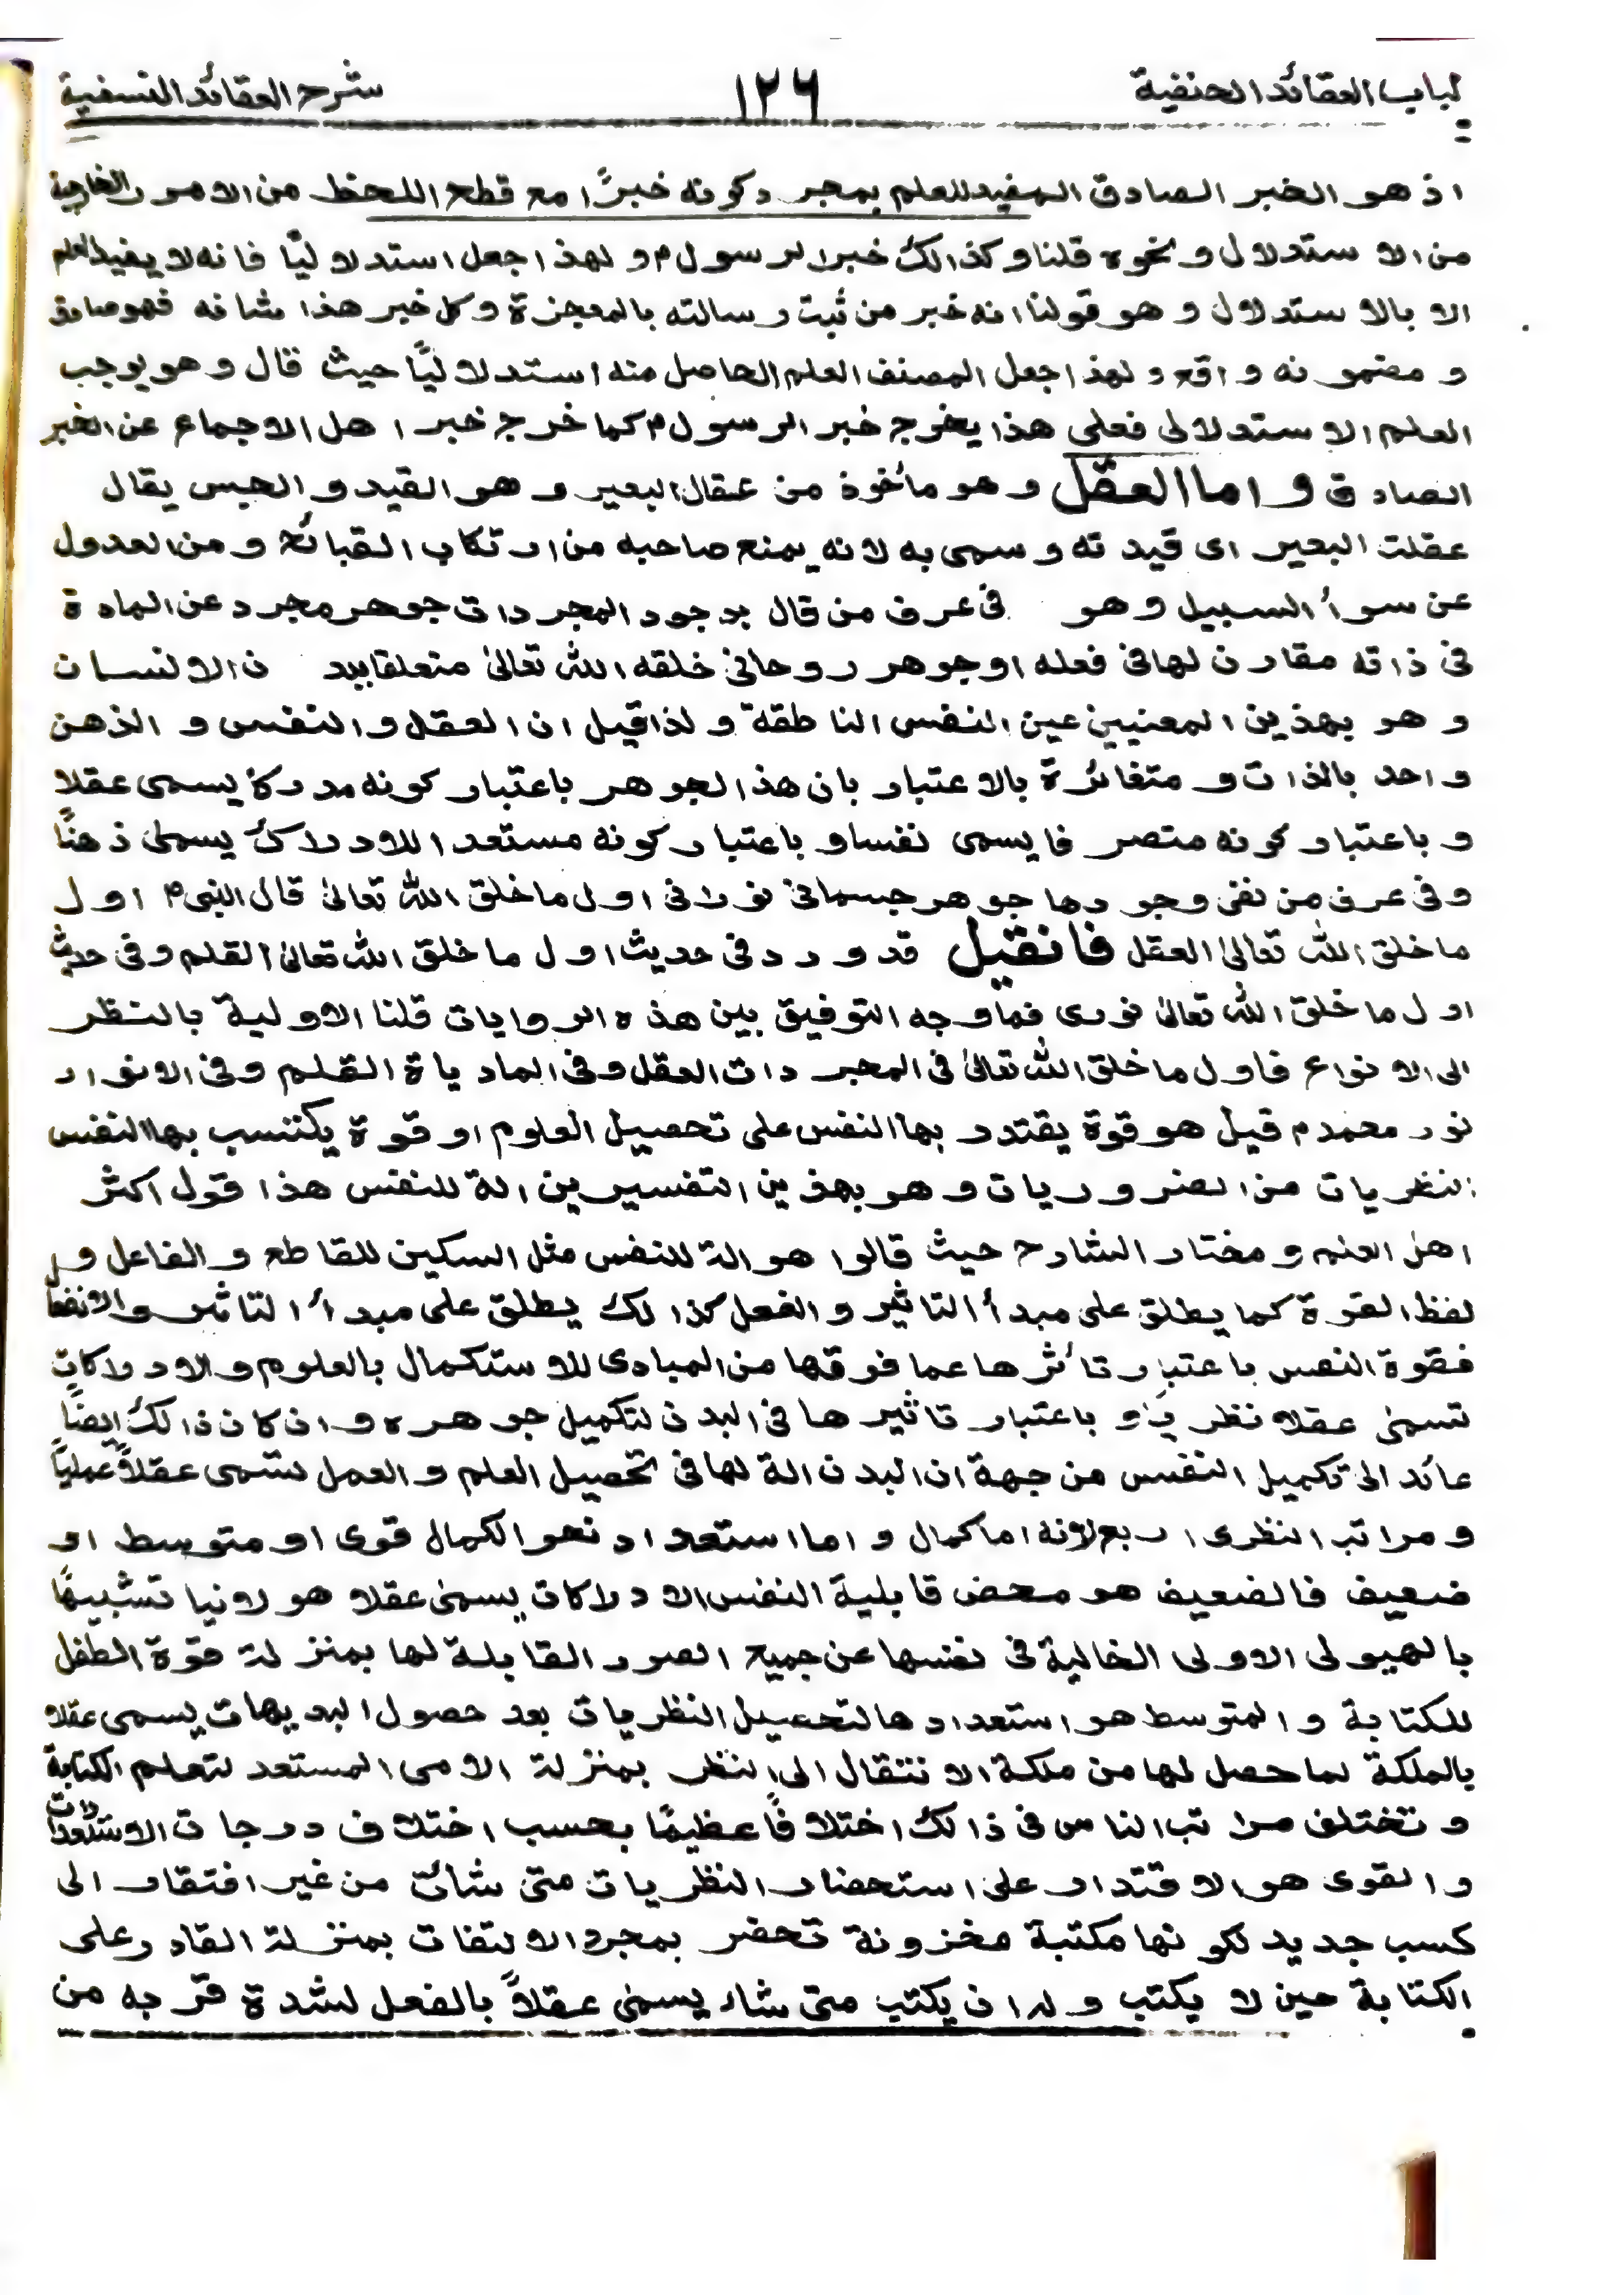 لباب العقائد الحنفية ١٢٦ شرح العقائد النسفية
اذ هو الخبر الصادق المفيد للعلم بمجرد كونه خبرًا مع قطع اللحظ من الامور الخارجية
من الاستدلال ونحوه قلنا وكذالك خبر الرسول م ولهذا جعل استدلاليًا فانه لا يفيد العلم
الا بالاستدلال وهو قولنا انه خبر من ثبت رسالته بالمعجزة وكل خبر هذا شانه فهو صادق
ومضمونه واقع ولهذا جعل المصنف العلم الحاصل منه استدلاليًا حيث قال وهو يوجب
العلم الاستدلالى فعلى هذا يخرج خبر الرسول م كما خرج خبر اهل الاجماع عن الخبر
الصادق واما العقل وهو مأخوذ من عقال البعير وهو القيد والحبس يقال
عقلت البعير اى قيدته وسمى به لانه يمنع صاحبه من ارتكاب القبائح ومن العدول
عن سوأ السبيل وهو فى عرف من قال بوجود المجردات جوهر مجرد عن المادة
فى ذاته مقارن لها فى فعله او جوهر روحانى خلقه الله تعالىٰ متعلقا ببدن الانسان
وهو بهذين المعنيين عين النفس الناطقة ولذا قيل ان العقل والنفس والذهن
واحد بالذات ومتغائرة بالاعتبار بان هذا لجوهر باعتبار كونه مدركا يسمى عقلا
وباعتبار كونه متصرفا يسمى نفسا وباعتبار كونه مستعدا للادراك يسمىٰ ذهنًا
وفى عرف من نفى وجودها جوهر جسمانى نورانى اول ما خلق الله تعالىٰ قال النبى م اول
ما خلق الله تعالىٰ العقل فانقيل قد ورد فى حديث اول ما خلق الله تعالىٰ القلم وفى حديث
اول ما خلق الله تعالىٰ نورى فما وجه التوفيق بين هذه الروايات قلنا الاولية بالنظر
الى الانواع فاول ما خلق الله تعالىٰ فى المجردات العقل وفى الماديات القلم وفى الانوار
نور محمد م قيل هو قوة يقتدر بها النفس على تحصيل العلوم او قوة يكتسب بها النفس
النظريات من الضروريات وهو بهذين التفسيرين الة للنفس هذا قول اكثر
اهل العلم ومختار الشارح حيث قالوا هو الة للنفس مثل السكين للقاطع والفاعل و
لفظ القوة كما يطلق على مبدأ التاثير والفعل كذالك يطلق على مبدأ التاثر والانفعا
فقوة النفس باعتبار تأثرها عما فوقها من المبادى للاستكمال بالعلوم والادراكات
تسمىٰ عقلا نظريا و باعتبار تاثيرها فى البدن لتكميل جوهره وان كان ذالك ايضًا
عائد الى تكميل النفس من جهة ان البدن الة لها فى تحصيل العلم والعمل تسمى عقلاً عمليًا
ومراتب النظرى اربع لانه اما كمال واما استعداد نحو الكمال قوى او متوسط او
ضعيف فالضعيف هو محض قابلية النفس الادراكات يسمىٰ عقلا هيولانيا تشبيهًا
بالهيولى الاولى الخالية فى نفسها عن جميع الصور القابلة لها بمنزلة قوة الطفل
للكتابة والمتوسط هو استعدادها لتحصيل النظريات بعد حصول البديهات يسمى عقلا
بالملكة لما حصل لها من ملكة الانتقال الى النظر بمنزلة الامى المستعد لتعلم الكتابة
وتختلف مراتب الناس فى ذالك اختلافًا عظيمًا بحسب اختلاف درجات الاستعدادات
والقوى هو الاقتدار على استحضار النظريات متى شائت من غير افتقار الى
كسب جديد لكونها مكتبة مخزونة تحضر بمجرد الالتفات بمنزلة القادر على
الكتابة حين لا يكتب وله ان يكتب متى شاء يسمىٰ عقلاً بالفعل لشدة قربه من